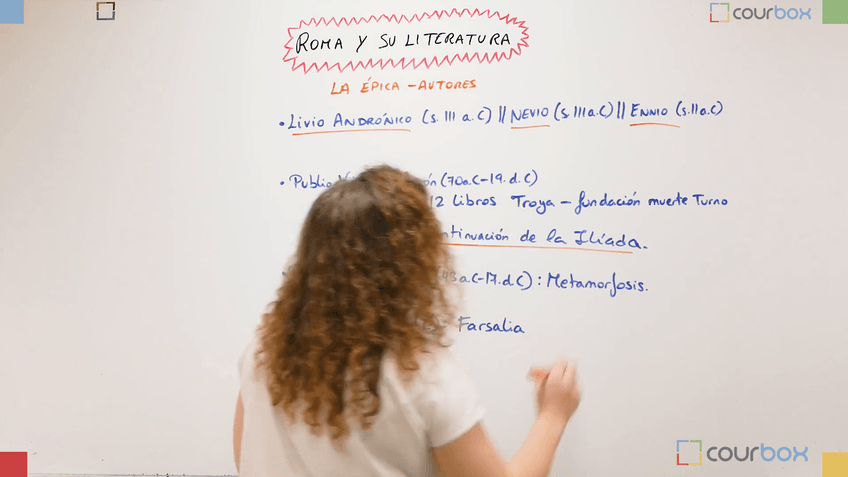 courbox
ROMA Y SU LITERATURA
LA ÉPICA - AUTORES
• LIVIO ANDRÓNICO (s. III a. C) || NEVIO (s. III a. C) || ENNIO (s. II a. C)
• Publio (70a.C-19. d. C)
12 Libros Troya - fundación muerte Turno
de la Ilíada.
a.C-17. d. C): Metamorfosis.
Farsalia
courbox